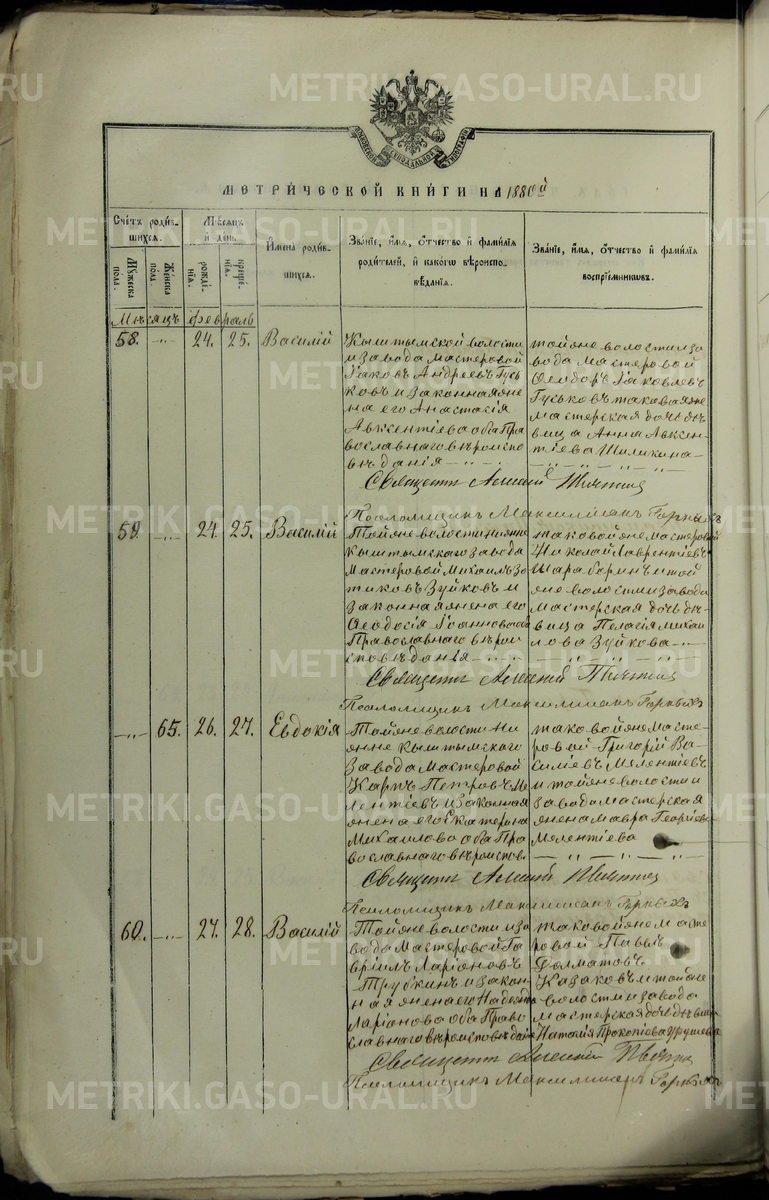 METRIKI.GASO-URAL.RU
МОСКОВСКОЙ СѴНОДАЛЬНОЙ ТИПОГРАФІИ
МЕТРИ́ЧЕСКОЙ КНИ́ГИ НА 1880й
Сче́тъ роди́вшихся.
Мѣ́сяцъ и҆ день.
Мꙋ́жеска пола.
Же́нска пола.
рожде́нїѧ.
креще́нїѧ.
И҆мена роди́вшихся.
Зва́нїе, и҆́мѧ, ѻ҆́тчество и҆ фами́лїѧ роди́телей, и҆ како́гѡ вѣроисповѣ́данїѧ.
Зва́нїе, и҆́мѧ, ѻ҆́тчество и҆ фами́лїѧ воспрїе́мникѡвъ.
Мѣсяцъ Февраль
58. 24. 25. Василій
Кыштымской волости
и завода мастеровой
Іаковъ Андреевъ Гусь
ковъ и законная же
на его Анастасія
Авксентіева оба Пра
вославнаго вѣроиспо
вѣданія
той же волости и за
вода мастеровой
Ѳеодоръ Іаковлевъ
Гуськовъ таковая же
мастерская дочь дѣ
вица Анна Авксен
тіева Шиликина
Священник Алексій
Псаломщикъ Максимиліанъ Горныхъ
59. 24. 25. Василій
Той же волости нижне
кыштымскаго завода
мастеровой Михаилъ Зо
тиковъ Зуйковъ и
законная жена его
Ѳеодосія Іоаннова оба
Православнаго вѣрои
сповѣданія
таковой же мастеровой
Николай Лаврентіевъ
Шарабаринъ и той
же волости и завода
мастерская дочь дѣ
вица Пелагія Михаи
лова Зуйкова
Священник Алексій
Псаломщикъ Максимиліанъ
65. 26. 27. Евдокія
Той же волости Ни
жне кыштымскаго
завода мастеровой
Карпъ Петровъ Ме
лентіевъ и законная
жена его Екатерина
Михайлова оба Пра
вославнаго вѣроиспов.
таковой же масте
ровой Григорій Ва
силіевъ Мелентіевъ
и той же волости и
завода мастерская
жена Мавра Георгіева
Мелентіева
Священник Алексій
Псаломщикъ Максимиліанъ
60. 27. 28. Василій
Той же волости и за
вода мастеровой Га
вріилъ Ларіоновъ
Трубкинъ и закон
ная жена его Надежда
Ларіонова оба Право
славнаго вѣроисповѣданія
таковой же масте
ровой Павелъ
Долматовъ
Казаковъ и той же
волости и завода
мастерская дочь дѣвица
Наталія Прокопіева
Священник Алексій
Псаломщикъ Максимиліанъ